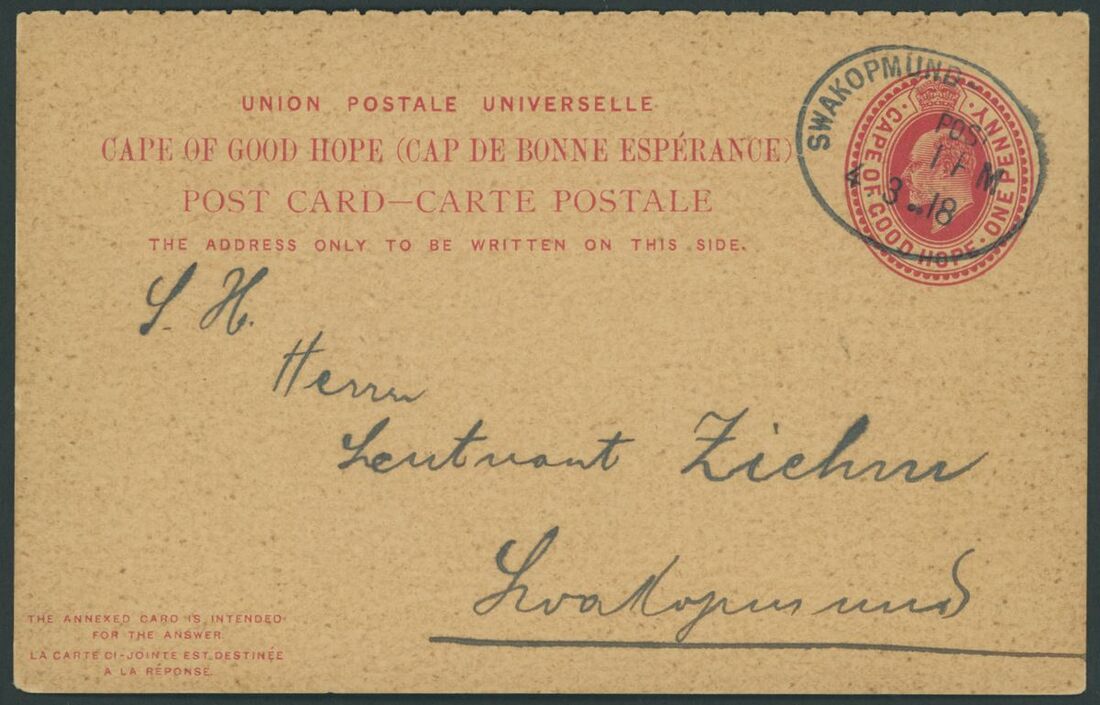 UNION POSTALE UNIVERSELLE
CAPE OF GOOD HOPE (CAP DE BONNE ESPÉRANCE)
POST CARD—CARTE POSTALE
THE ADDRESS ONLY TO BE WRITTEN ON THIS SIDE.
SWAKOPMUND
1 PM
3 18
CAPE OF GOOD HOPE · ONE PENNY
S. H.
Herrn
Leutnant Ziehm
Swakopmund
THE ANNEXED CARD IS INTENDED
FOR THE ANSWER.
LA CARTE CI-JOINTE EST DESTINÉE
A LA RÉPONSE.